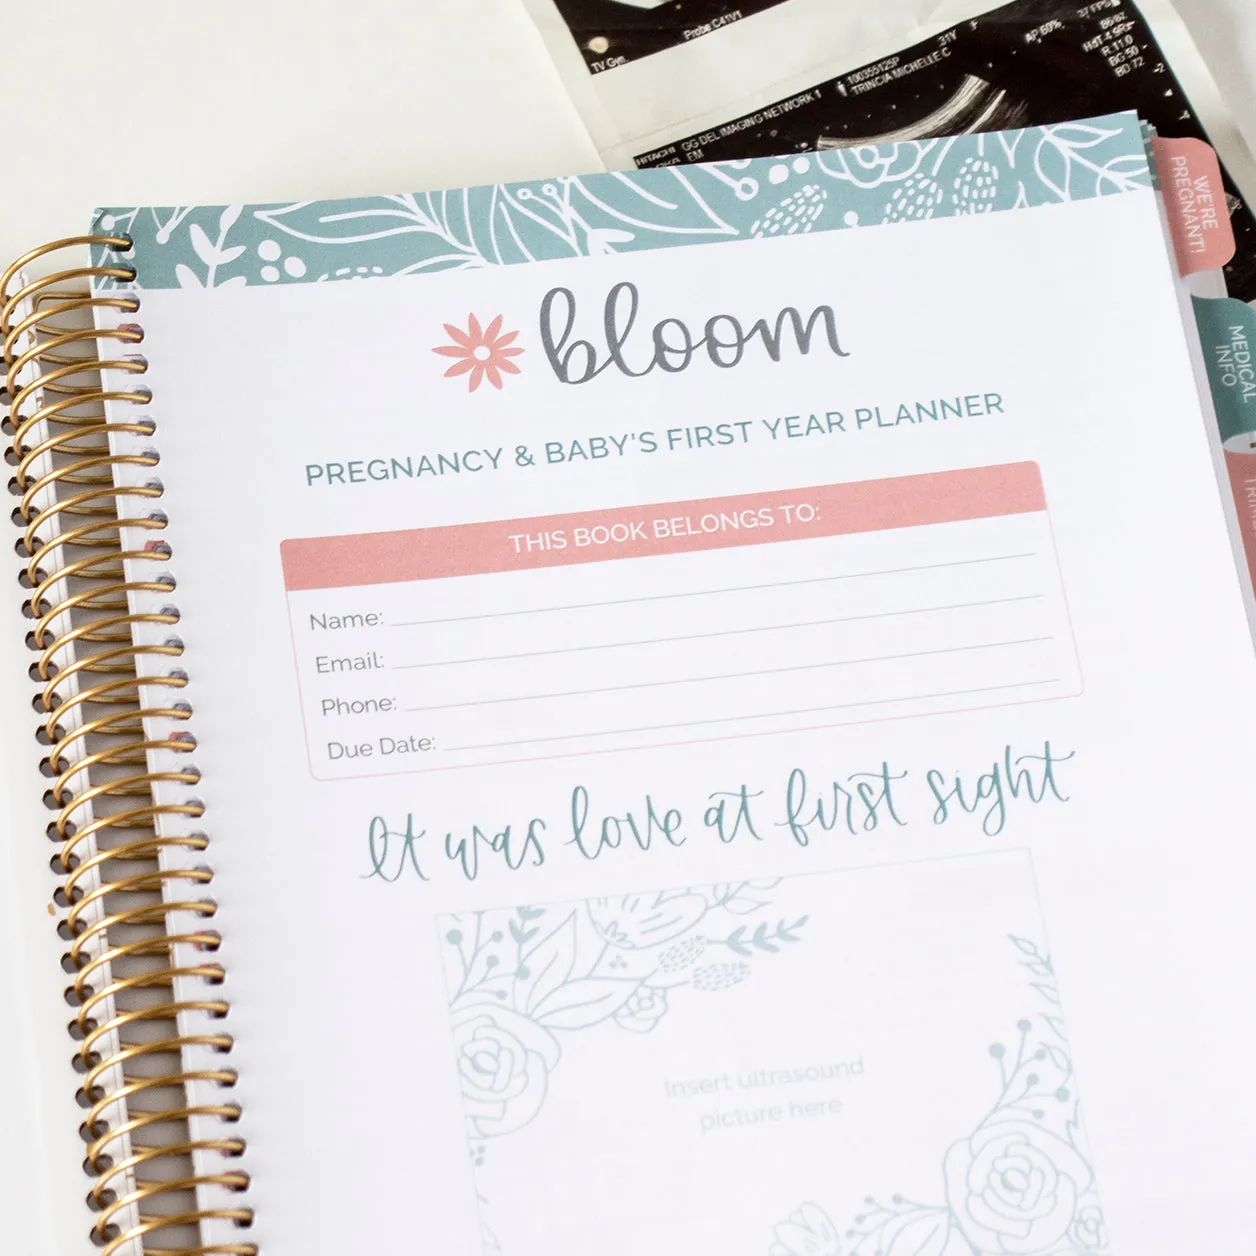 Probe C41V1
TV Gyn.
31Y
AP 60%
37 FPS
HITACHI GG DEL IMAGING NETWORK 1
100355125P
TRINCIA MICHELLE C
EM
R 11.0
BG 50
BD 72
-2
WE'RE
PREGNANT!
MEDICAL
INFO
bloom
PREGNANCY & BABY'S FIRST YEAR PLANNER
THIS BOOK BELONGS TO:
Name:
Email:
Phone:
Due Date:
It was love at first sight
Insert ultrasound
picture here